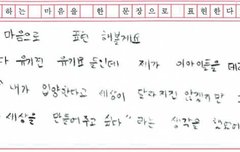 하는 마음을 한 문장으로 표현한다
마음으로 표현 해볼게요
다 유기진 유기묘들인데 제가 이 아이들을 데려
"내가 입양한다고 세상이 달라지진 않겠지만
세상을 만들어주고 싶다" 라는 생각을 했